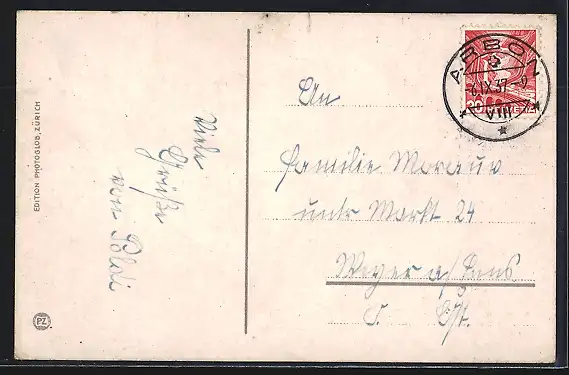 EDITION PHOTOGLOB, ZÜRICH
PZ
Viele
Grüße
von Poldi
ARBON
6.IX.37.-9
VIII
An
Familie
untr Markt 24
Weyer a/ Enns